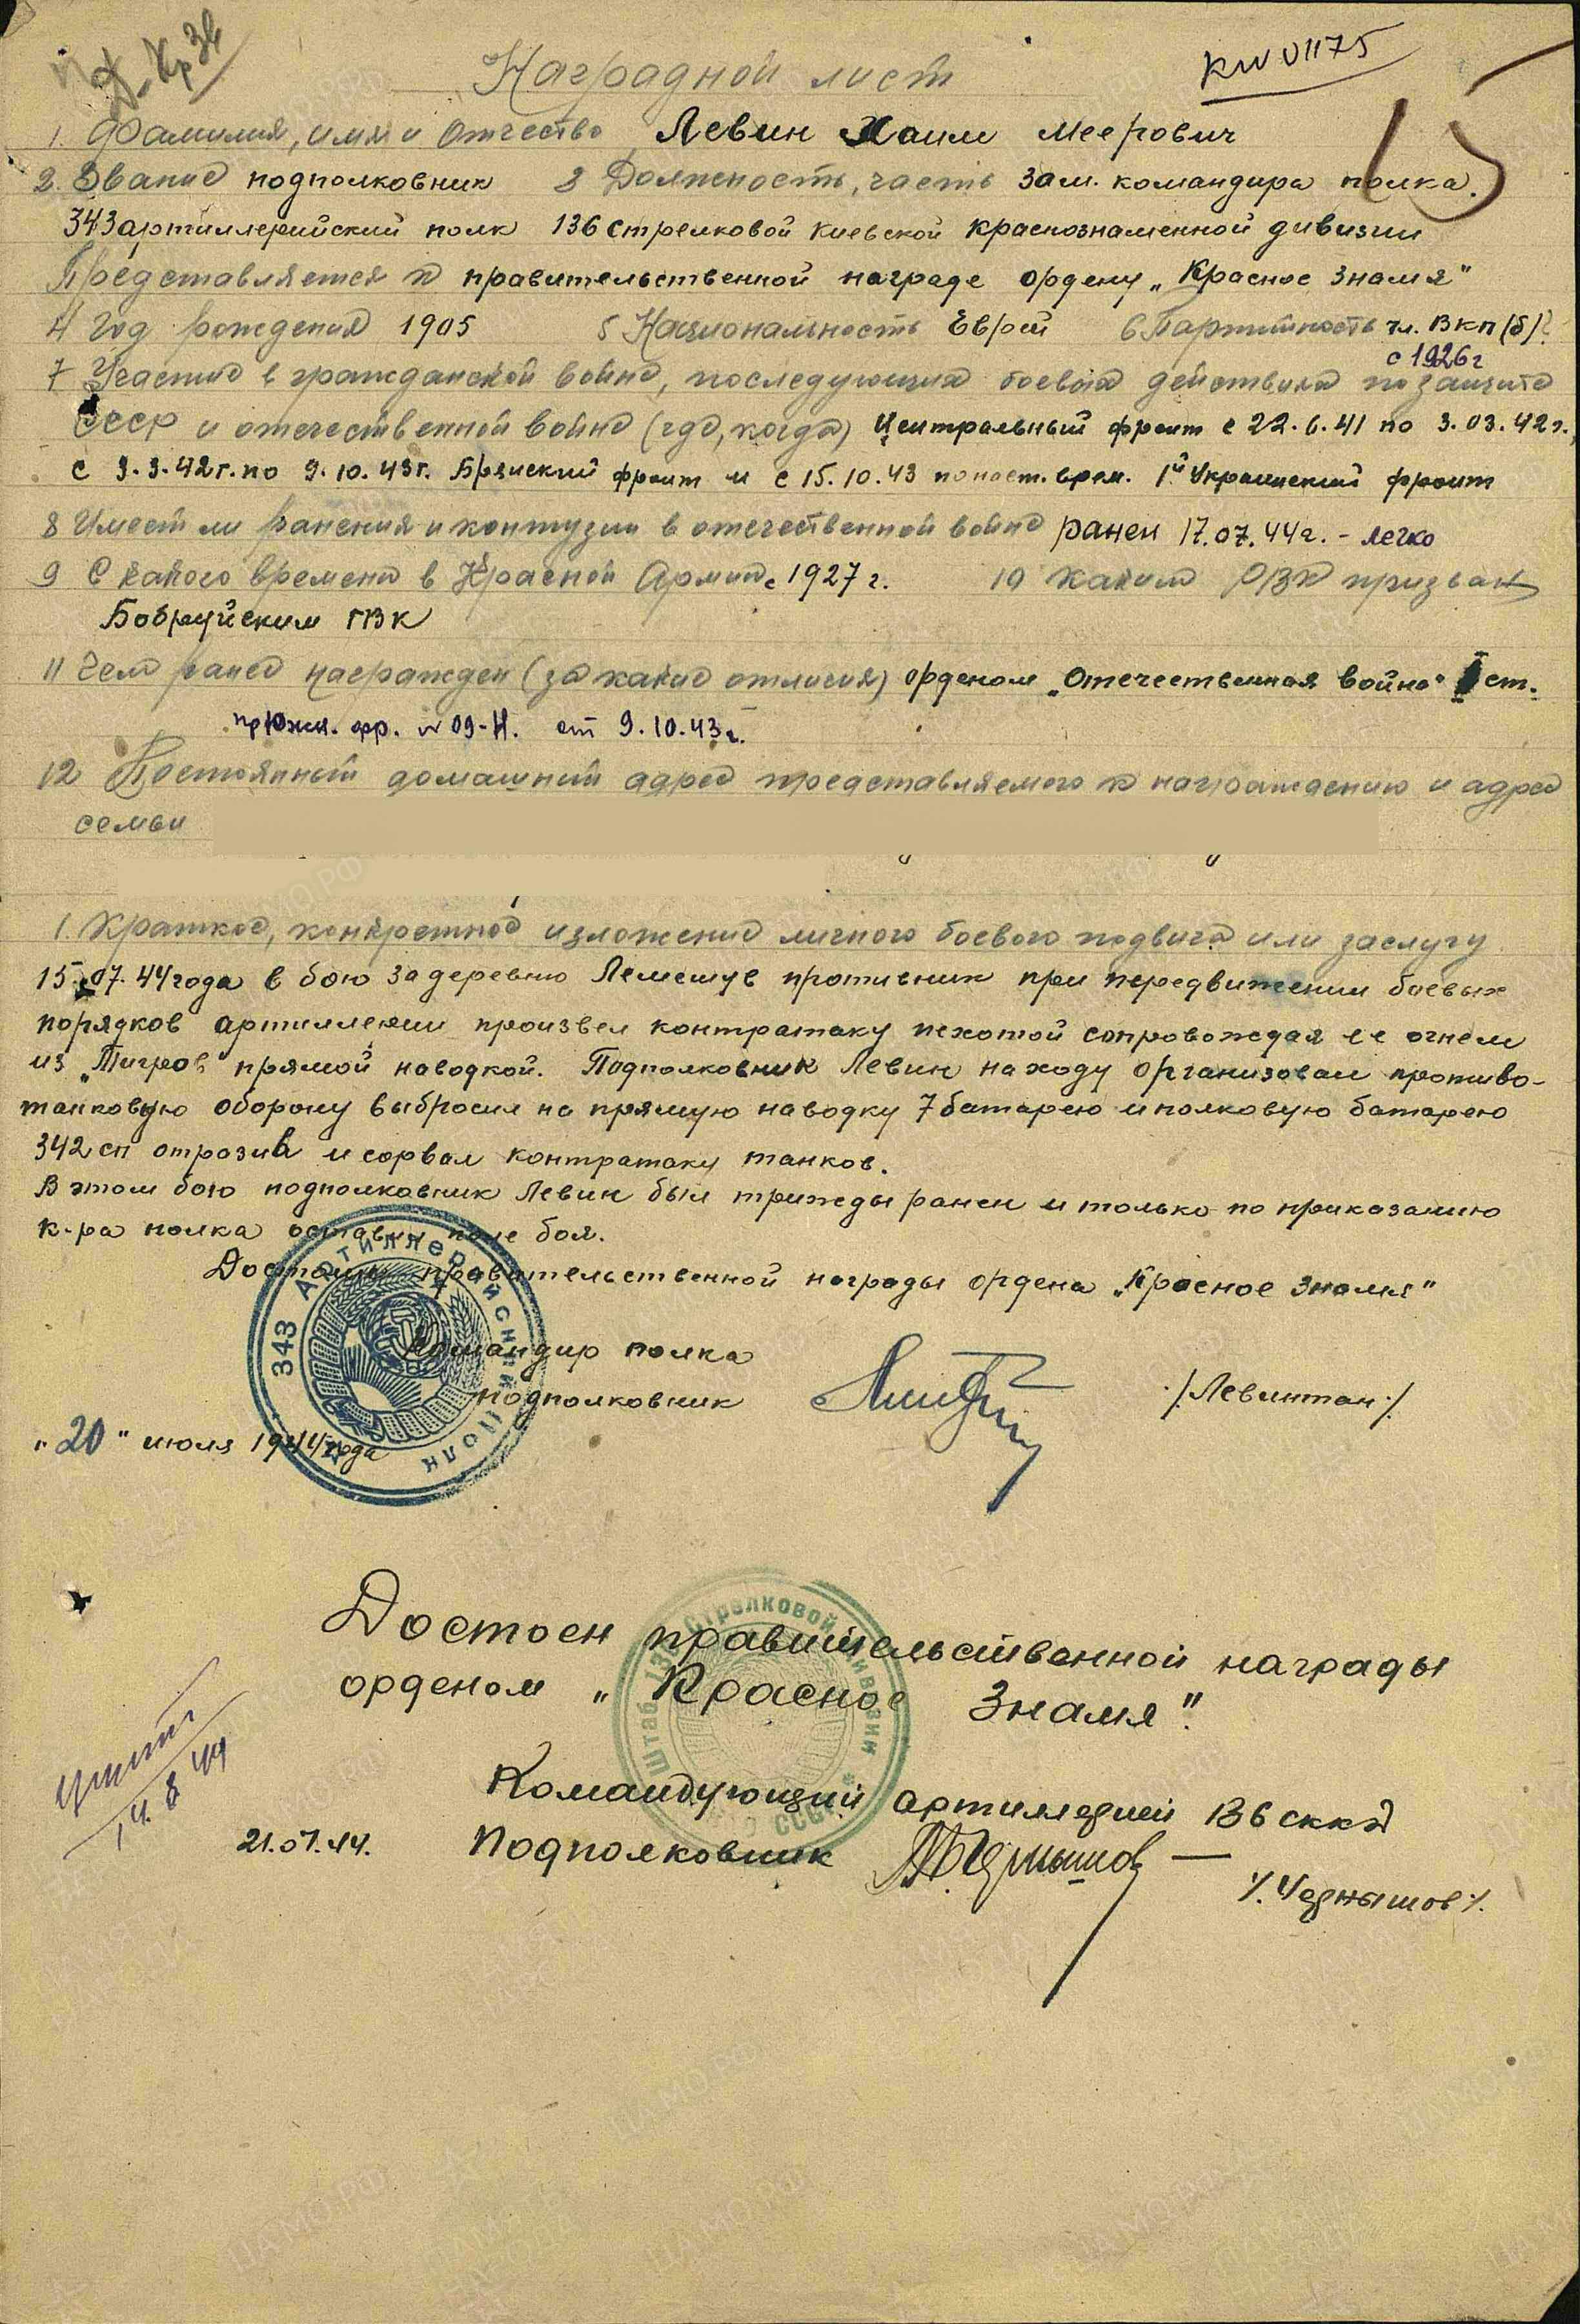 Наградной лист
1. Фамилия, имя и отчество Левин Хаим Меерович
2. Звание подполковник 3 Должность, часть зам. командира полка.
343 артиллерийский полк 136 стрелковой Киевской краснознаменной дивизии
Представляется к правительственной награде ордену „Красное Знамя"
4 Год рождения 1905 5 Национальность Еврей 6 Партийность чл. ВКП(б)
с 1926г
7 Участие в гражданской войне, последующих боевых действиях по защите
СССР и отечественной войне (где, когда) Центральный фронт с 22.6.41 по 3.03.42г.,
с 9.3.42г. по 9.10.43г. Брянский фронт и с 15.10.43 по наст. врем. 1й Украинский фронт
8 Имеет ли ранения и контузии в отечественной войне ранен 17.07.44г. - легко
9 С какого времени в Красной Армии с 1927 г. 10 Каким РВК призван
Бобруйским ГВК
11 Чем ранее награжден (за какие отличия) орденом „Отечественная война" ст.
пр. Южн. фр. № 09-Н. от 9.10.43г.
12 Постоянный домашний адрес представляемого к награждению и адрес
семьи
1. Краткое, конкретное изложение личного боевого подвига или заслуг
15.07.44 года в бою за деревню Лемешув противник при передвижении боевых
порядков артиллерии произвел контратаку пехотой сопровождая ее огнем
из „Тигров" прямой наводкой. Подполковник Левин на ходу организовал противо-
танковую оборону выбросил на прямую наводку 7 батарею и полковую батарею
342 сп отразив и сорвал контратаку танков.
В этом бою подполковник Левин был трижды ранен и только по приказанию
к-ра полка оставил поле боя.
Достоин правительственной награды ордена „Красное Знамя"
343 Артиллерийский Полк
Командир полка
подполковник /Левинтан/
„20" июля 1944 года
Штаб 136 Стрелковой Дивизии СССР
Достоен правительственной награды
орденом „Красное Знамя".
Командующий артиллерией 136 сккд
21.07.44. Подполковник
/.Чернышов/.
14.8.44